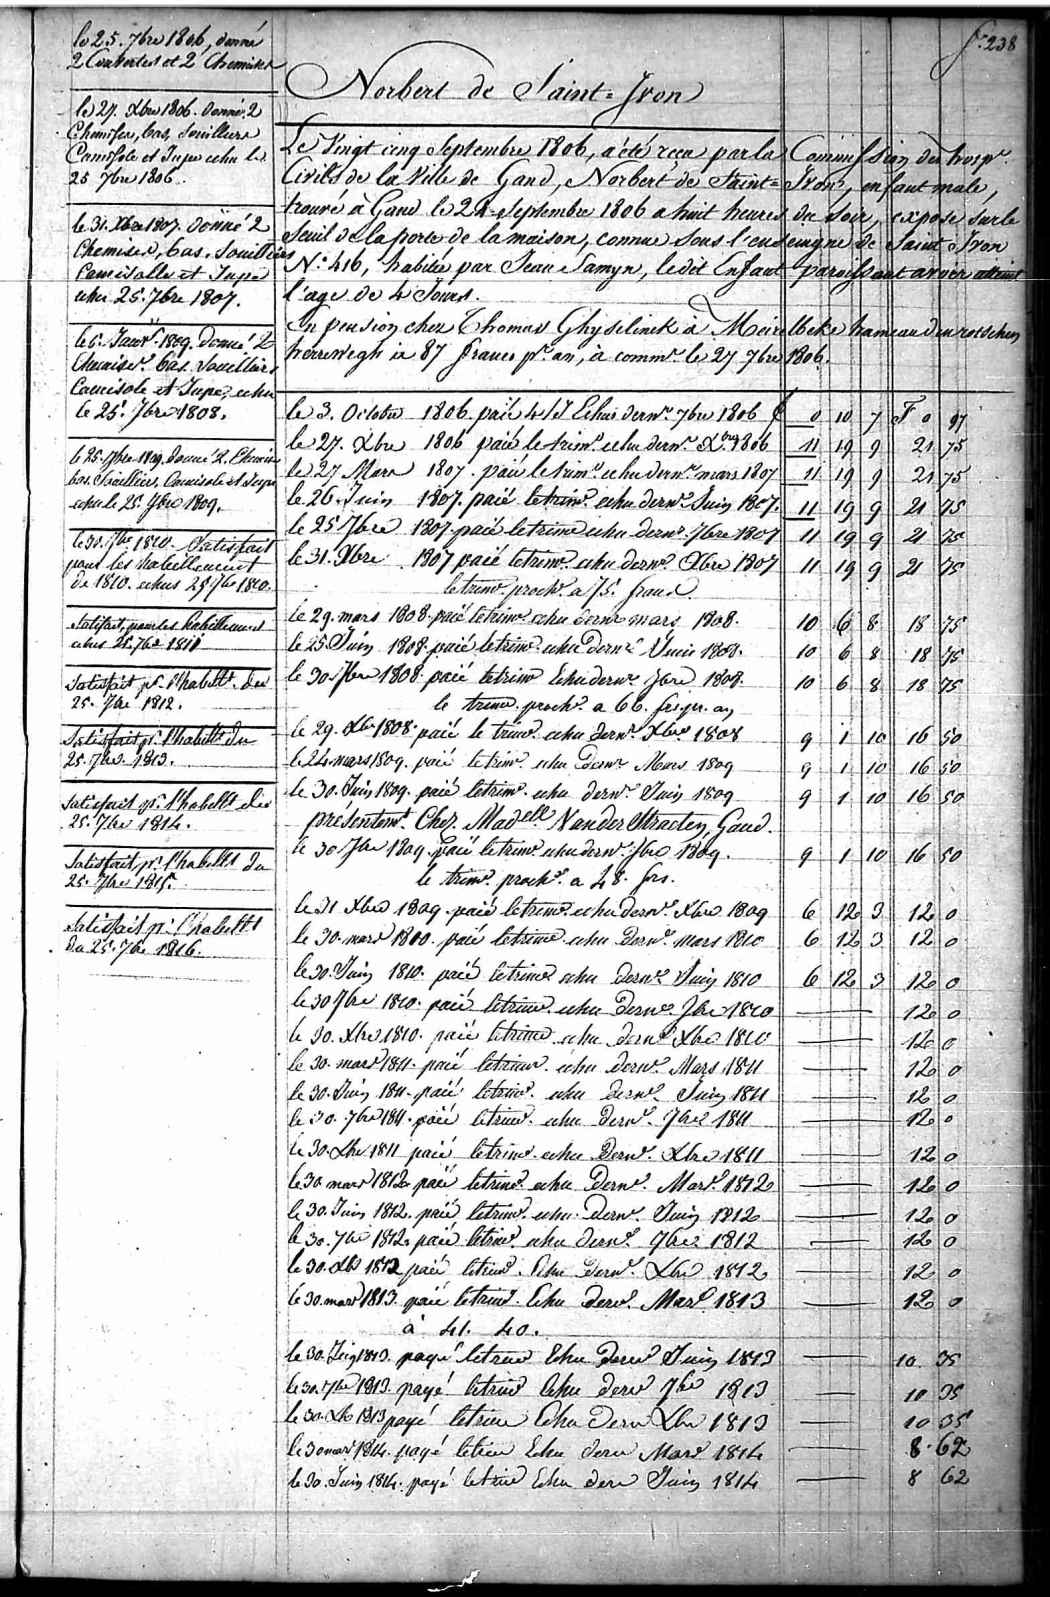 f° 238
le 25. 7bre 1806, donné
2 Couvertes et 2 Chemises
le 27. Xbre 1806. donné 2
Chemises, bas, Souilliers
Camisole et Jupe echu le
25 7bre 1806.
le 31. Xbre 1807. donné 2
Chemises, bas, Souilliers
Camisolle et Jupe
echu 25. 7bre 1807.
le 6. Janvr. 1809. donné 2
Chemises. bas. Souilliers
Camisole et Jupe, echu
le 25. 7bre 1808.
le 25. 7bre 1809. donné 2. Chemises
bas. Souilliers, Camisole et Jupe
echu le 25. 7bre 1809.
le 30. 7bre 1810. Satisfait
pour les habillement
de 1810. echus 25 7bre 1810.
Satisfait, pour les habillement
echus 25. 7bre 1811
Satisfait pr. l'habillt. du
25. 7bre 1812.
Satisfait pr. l'habillt du
25. 7bre. 1813.
Satisfait pr. l'habillt du
25. 7bre 1814.
Satisfait, pr. l'habillt du
25. 7bre 1815.
Satisfait pr. l'habillt
du 25. 7bre 1816.
Norbert de Saint=Jron
Le Vingt cinq Septembre 1806, a été reçu par la Commission des hospes.
Civils de la Ville de Gand, Norbert de Saint=Jron, enfant male,
trouvé à Gand le 24 Septembre 1806 a huit heures du soir, exposé sur le
Seuil de la porte de la maison, connue sous l'enseigne de Saint Jron
N° 416, habitée par Jean Samyn, ledit Enfant paroissant avoir atteint
l'age de 4 Jours.
En pension chez Thomas Ghyselinck à Meirelbeke hameau den rotschen
herrewegh à 87 francs pr. an, à comme. le 27 7bre 1806.
le 3. Octobre 1806 paié 4 Js Echus dernr. 7bre 1806 £ 0 10 7 F 0 97
le 27. Xbre 1806 paié le trimr. echu dernr. Xbre 1806 11 19 9 21 75
le 27 Mars 1807. paié le trimr. echu dernr. mars 1807 11 19 9 21 75
le 26. Juin 1807. paié le trimr. echu dernr. Juin 1807. 11 19 9 21 75
le 25 7bre 1807. paié le trimr echu dernr. 7bre 1807 11 19 9 21 75
le 31. Xbre 1807 paié le trimr. echu dernr. Xbre 1807 11 19 9 21 75
le trimr. prochr. a 75. francs.
le 29. mars 1808. paié le trimr. echu dernr mars 1808. 10 6 8 18 75
le 25 Juin 1808. paié le trimr. echu dernr. Juin 1808. 10 6 8 18 75
le 30 7bre 1808. paié le trimr Echu dernr. 7bre 1808. 10 6 8 18 75
le trimr. prochr. a 66. frs. pr. an
le 29. Xbre 1808. paié le trimr. echu dernr. Xbre 1808 9 1 10 16 50
le 24. mars 1809. paié le trimr. echu dernr Mars 1809 9 1 10 16 50
le 30. Juin 1809. paié le trimr. echu dernr. Juin 1809 9 1 10 16 50
présentemt. Chez Madelle Vander Stracten, Gand.
le 30 7bre 1809. paié le trimr. echu dernr. 7bre 1809. 9 1 10 16 50
le trimr. prochr. a 48. frs.
le 31 Xbre 1809. paié le trimr. echu dernr. Xbre 1809 6 12 3 12 0
le 30. mars 1810. paié le trimr echu dernr. mars 1810 6 12 3 12 0
le 30. Juin 1810. paié le trimr echu dernr. Juin 1810 6 12 3 12 0
le 30 7bre 1810. paié le trimr. echu dernr. 7bre 1810 12 0
le 30. Xbre 1810. paié le trimr echu dernr Xbre 1810 12 0
le 30. mars 1811. paié le trimr. echu dernr. Mars 1811 12 0
le 30. Juin 1811. paié le trimr. echu dernr. Juin 1811 12 0
le 30. 7bre 1811. paié le trimr. echu dernr. 7bre 1811 12 0
le 30. Xbre 1811 paié le trimr. echu dernr. Xbre 1811 12 0
le 30 mars 1812 paié le trimr. echu dernr. Mars. 1812 12 0
le 30. Juin 1812. paié le trimr. echu dernr. Juin 1812 12 0
le 30. 7bre 1812. paié le trimr. echu dernr. 7bre 1812 12 0
le 30. Xbre 1812 paié le trimr. Echu dernr. Xbre 1812 12 0
le 30. mars 1813. paié le trimr. Echu dernr. Mars. 1813 12 0
à 41. 40.
le 30. Juin 1813. payé le trimr Echu dernr Juin 1813 10 35
le 30. 7bre 1813. payé le trimr Echu dernr 7bre 1813 10 35
le 30. Xbre 1813 payé le trimr Echu dernr Xbre 1813 10 35
le 30 mars 1814. payé le trimr Echu dernr Mars 1814 8. 62
le 30. Juin 1814. payé le trimr Echu dernr Juin 1814 8 62